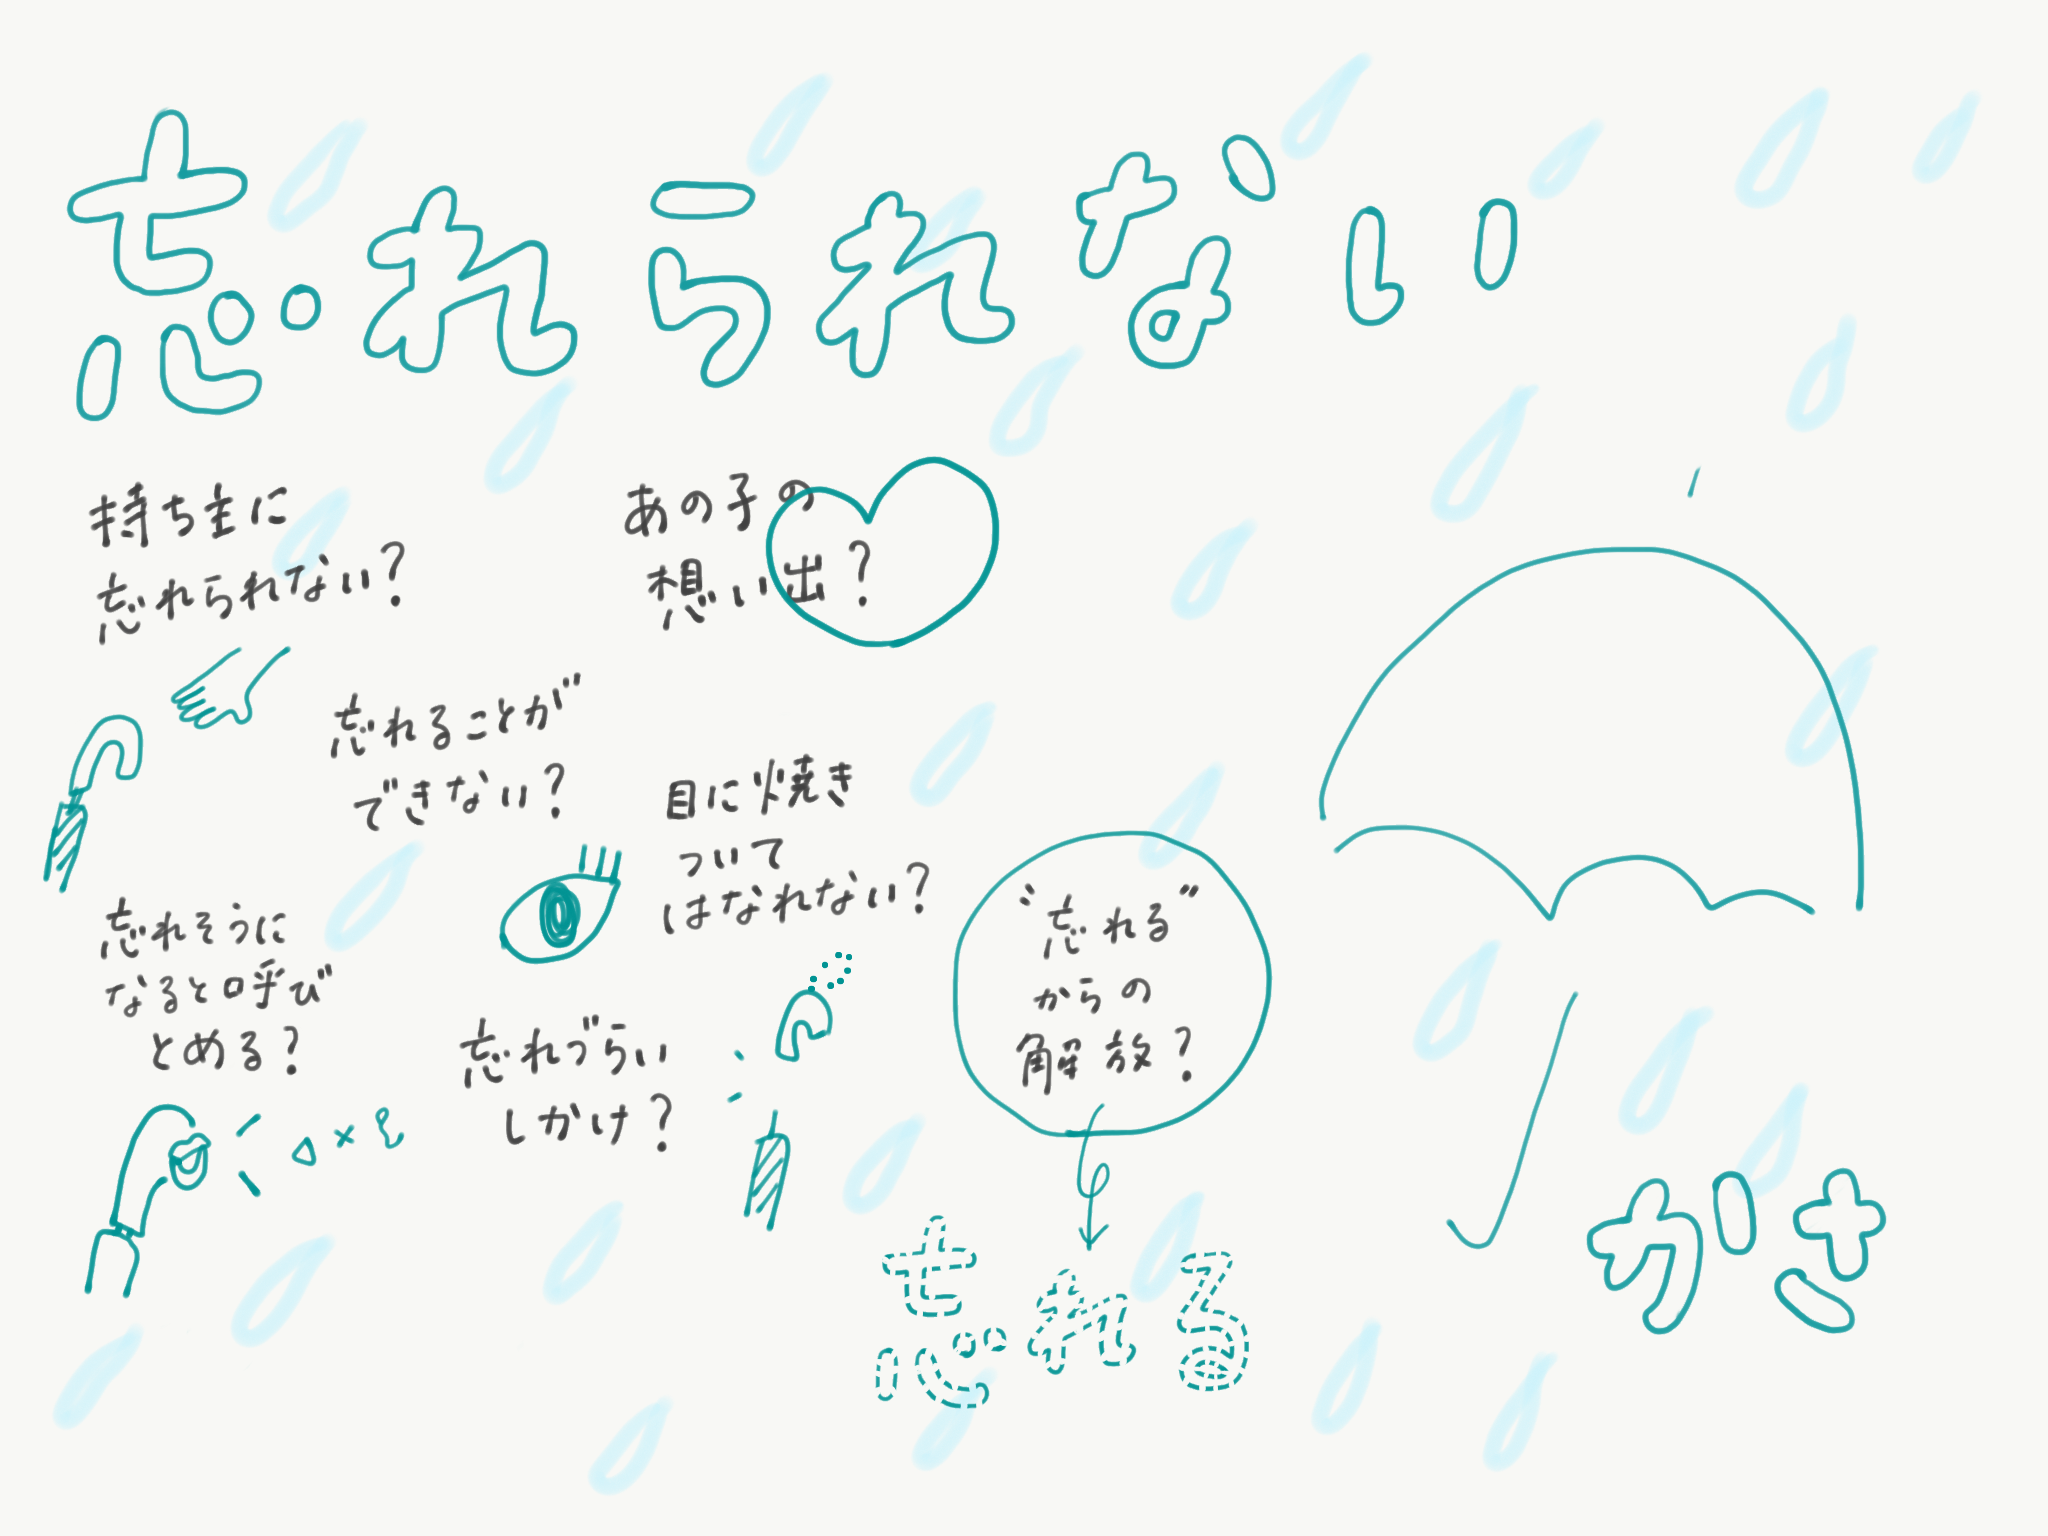 忘れられない
持ち主に
忘れられない?
あの子の
想い出?
忘れることが
できない?
目に焼き
ついて
はなれない?
忘れそうに
なると呼び
とめる?
忘れづらい
しかけ?
〝忘れる〟
からの
解放?
忘れる
がさ